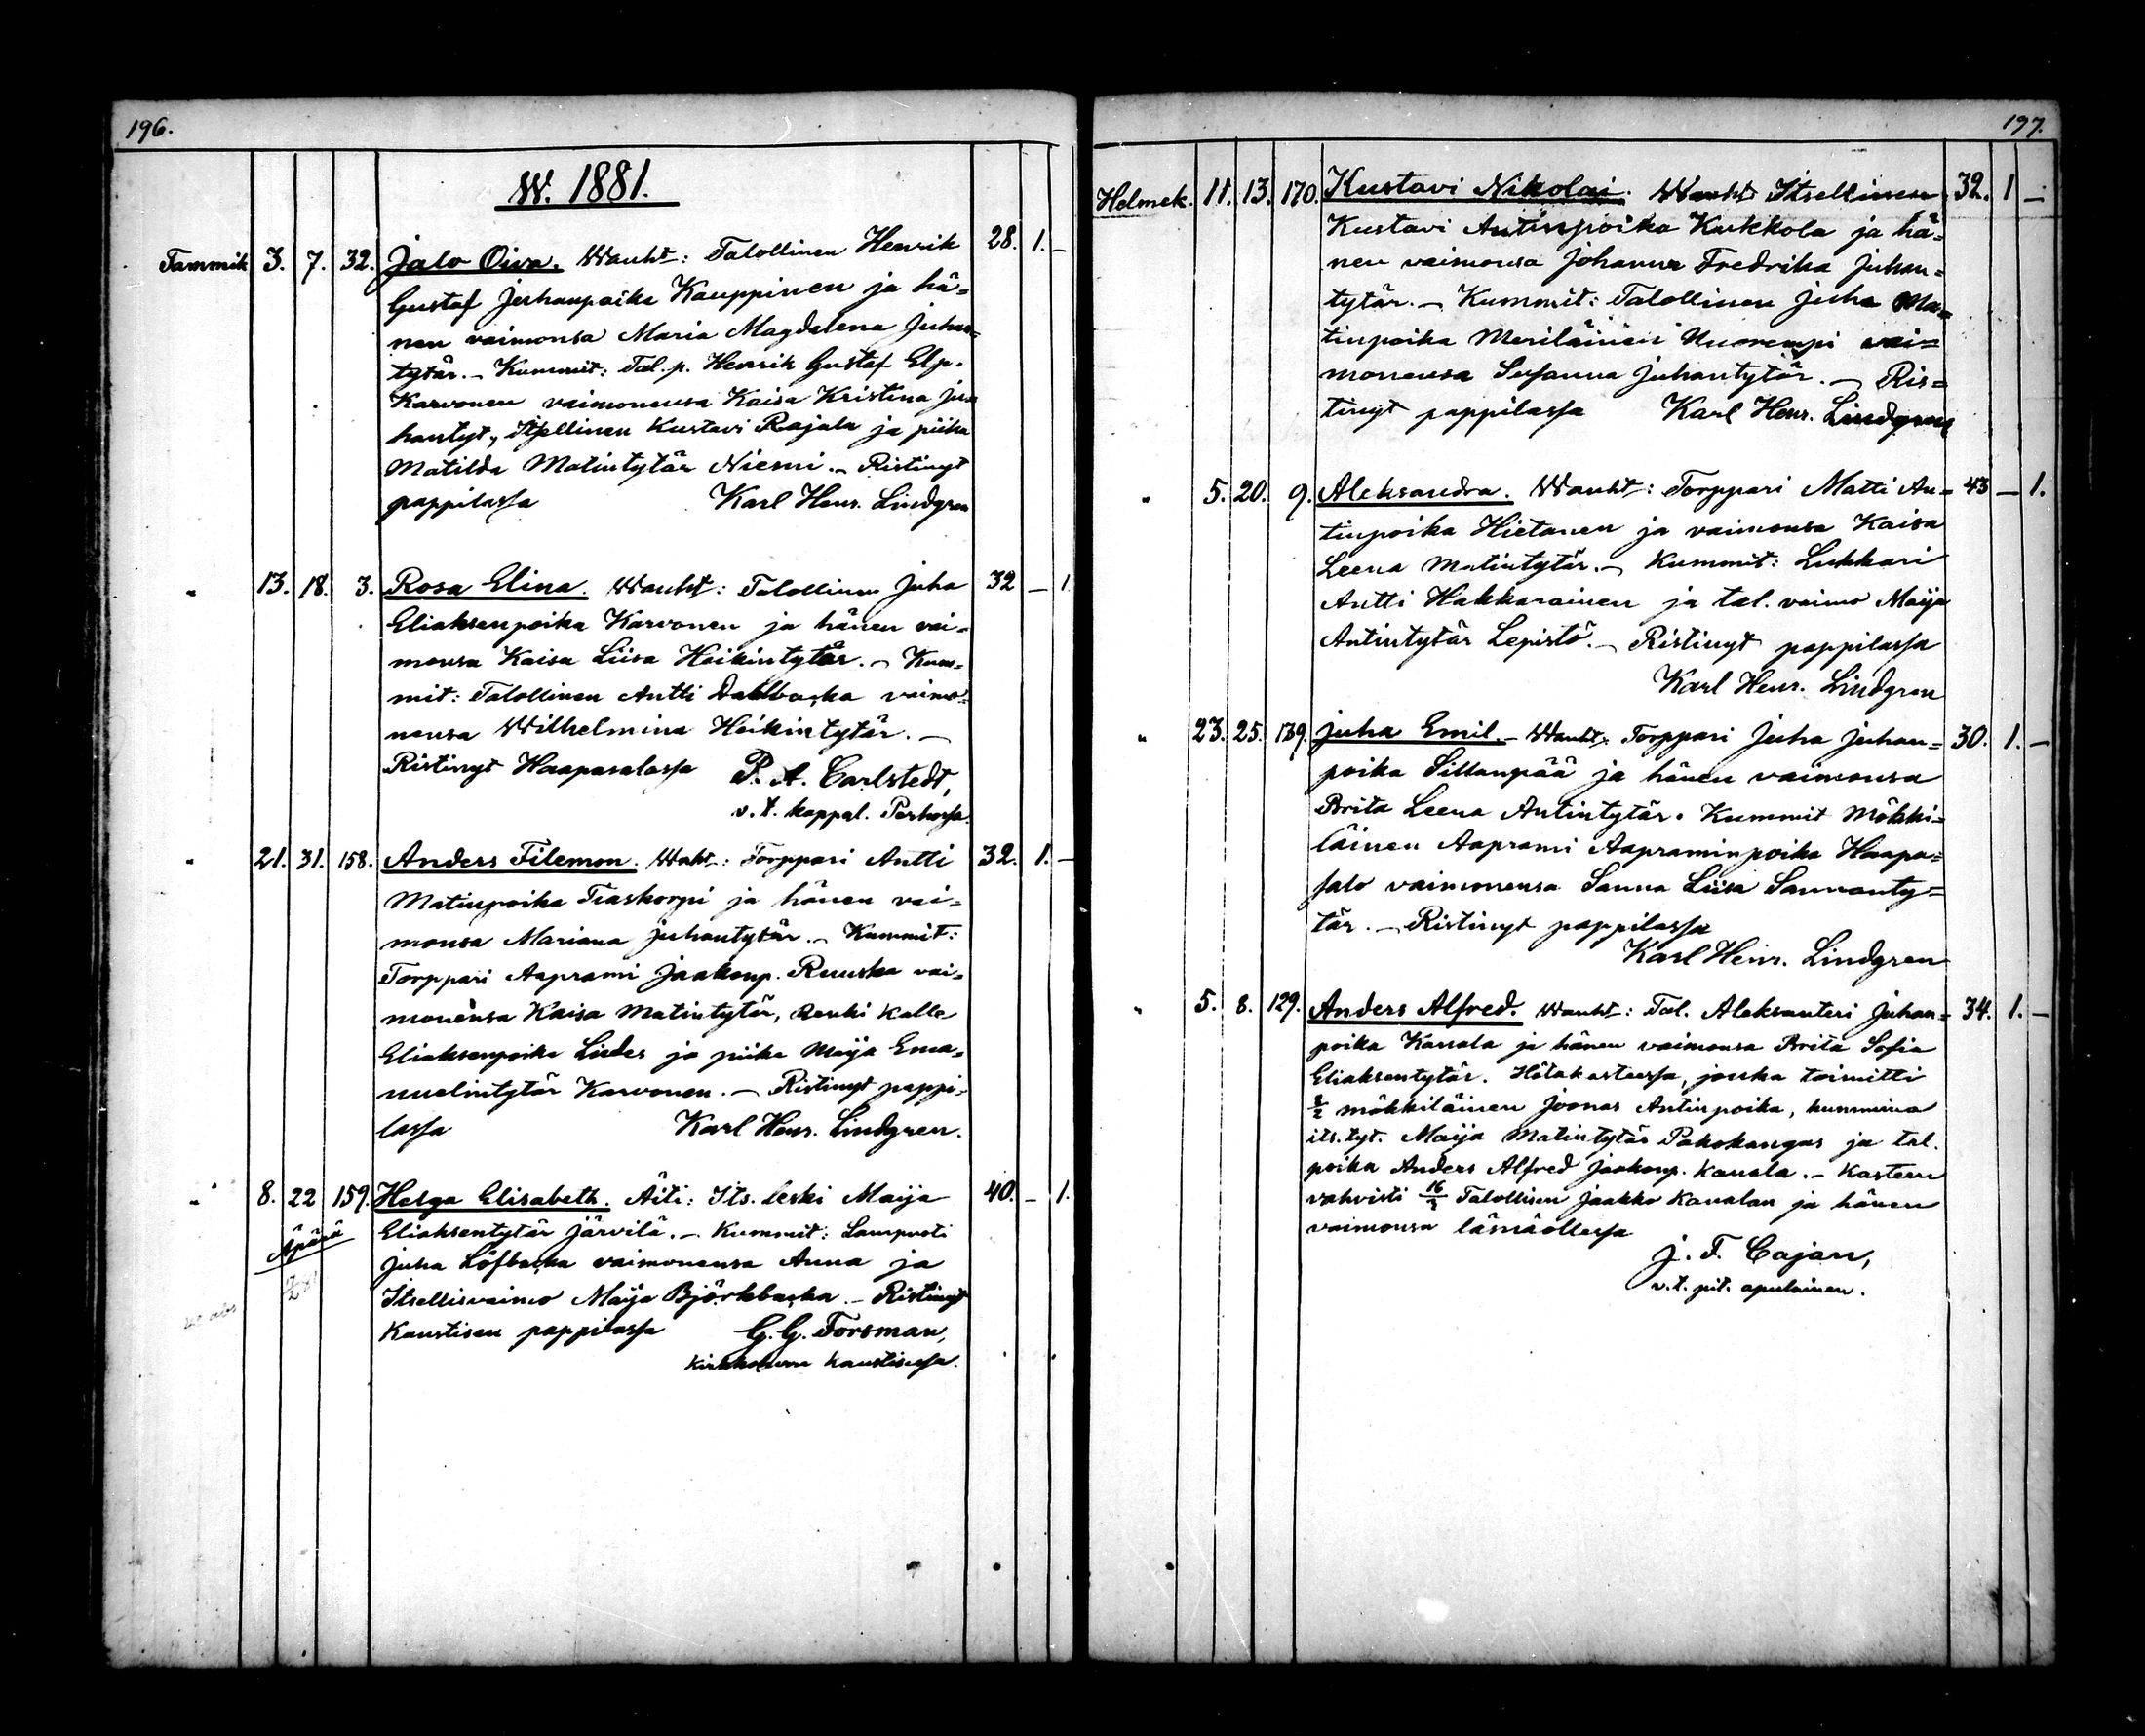 196.
W. 1881.
Tammik 3. 7. 32. Jalo Oiva. Wanht: Talollinen Henrik 28. 1. –
Gustaf Juhanpoika Kauppinen ja hä=
nen vaimonsa Maria Magdalena Juhan=
tytär. – Kummit: Tal. p. Henrik Gustaf Elp.
Karvonen vaimonensa Kaisa Kristina Ju=
hantyt., Itsellinen Kustavi Rajala ja piika
Matilda Matintytär Niemi. – Ristinyt
pappilassa Karl Henr. Lindgren
" 13. 18. 3. Rosa Elina. Wanht: Talollinen Juha 32 – 1.
Eliaksenpoika Karvonen ja hänen vai=
monsa Kaisa Liisa Heikintytär. – Kum=
mit: Talollinen Antti Dahlbacka vaimo=
nensa Wilhelmina Heikintytär. –
Ristinyt Haapasalassa P. A. Carlstedt,
v. t. kappal. Perhossa.
" 21. 31. 158. Anders Filemon. Waht: Torppari Antti 32. 1. –
Matinpoika Tiaskorpi ja hänen vai=
monsa Mariana Juhantytär. – Kummit:
Torppari Aaprami Jaakonp. Ruuska vai=
monensa Kaisa Matintytär, Renki Kalle
Eliaksenpoika Liedes ja piika Maija Ema=
nuelintytär Karvonen. – Ristinyt pappi=
lassa Karl Henr. Lindgren.
" 8. 22 159. Helga Elisabeth. Äiti: Its. leski Maija 40. – 1.
Äpärä Eliaksentytär Järvilä. – Kummit: Lampuoti
Juha Löfbacka vaimonensa Anna ja
Itsellisvaimo Maija Björkbacka. – Ristinyt
Kaustisen pappilassa G. G. Forsman,
Kirkkoherra Kaustisessa.
197.
Helmek. 11. 13. 170. Kustavi Nikolai. Wanht Itsellinen 32. 1 –
Kustavi Antinpoika Kukkola ja hä=
nen vaimonsa Johanna Fredrika Juhan=
tytär. – Kummit: Talollinen Juha Ma=
tinpoika Meriläinen Nuorempi vai=
monensa Susanna Juhantytär. – Ris=
tinyt pappilassa Karl Henr. Lindgren
" 5. 20. 9. Aleksandra. Wanht: Torppari Matti An= 43 – 1.
tinpoika Hietanen ja vaimonsa Kaisa
Leena Matintytär. – Kummit: Lukkari
Antti Hakkarainen ja tal. vaimo Maija
Antintytär Lepistö. – Ristinyt pappilassa
Karl Henr. Lindgren
" 23. 25. 139. Juha Emil. – Wanht: Torppari Juha Juhan= 30. 1. –
poika Sillanpää ja hänen vaimonsa
Brita Leena Antintytär. Kummit Mökki=
läinen Aaprami Aapraminpoika Haapa=
salo vaimonensa Sanna Liisa Sannanty=
tär. – Ristinyt pappilassa
Karl Henr. Lindgren
" 5. 8. 129. Anders Alfred. Wanht: Tal. Aleksanteri Juhan= 34. 1. –
poika Kanala ja hänen vaimonsa Brita Sofia
Eliaksentytär. Hätäkasteessa, jonka toimitti
8/2 mökkiläinen Joonas Antinpoika, kummina
its. tyt. Maija Matintytär Pakokangas ja tal.
poika Anders Alfred Jaakonp. Kanala. – Kasteen
vahvisti 16/2 Talollisen Jaakko Kanalan ja hänen
vaimonsa läsnäollessa
J. F. Cajan,
v. t. pit. apulainen.